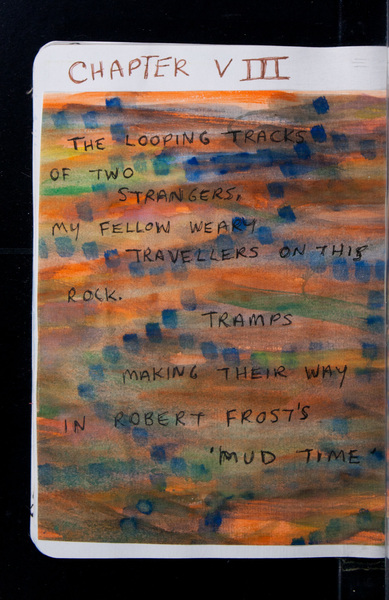 CHAPTER VIII
THE LOOPING TRACKS
OF TWO
STRANGERS,
MY FELLOW WEARY
TRAVELLERS ON THIS
ROCK.
TRAMPS
MAKING THEIR WAY
IN ROBERT FROST'S
'MUD TIME'